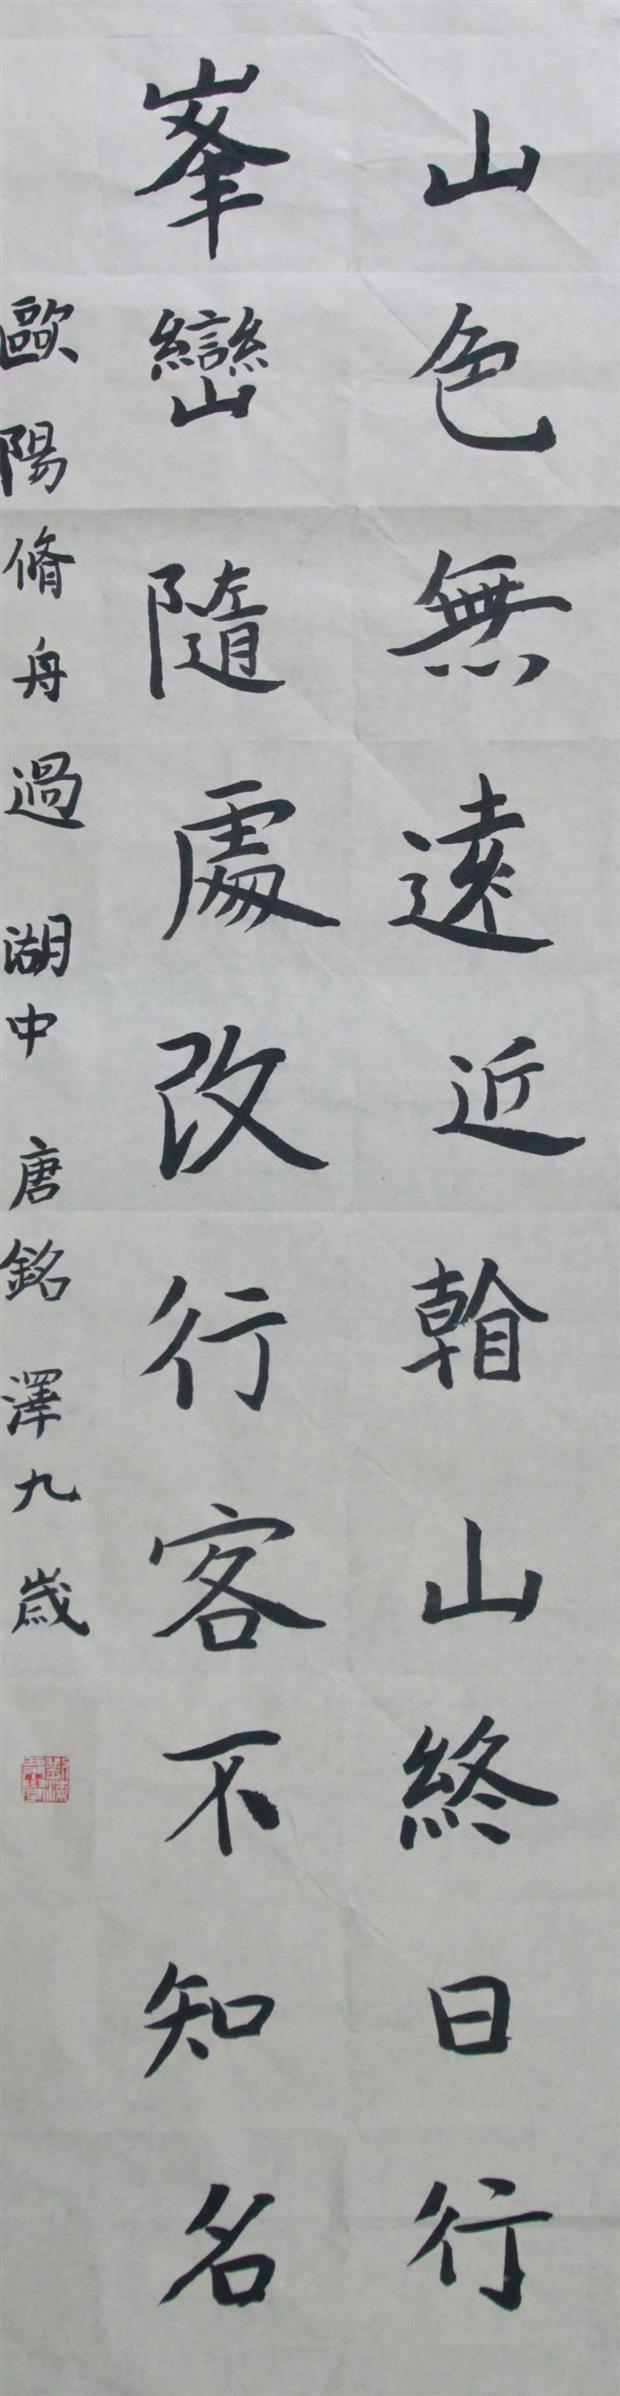 山色無遠近看山終日行
峯巒隨處改行客不知名
歐陽脩舟過湖中唐銘澤九歲